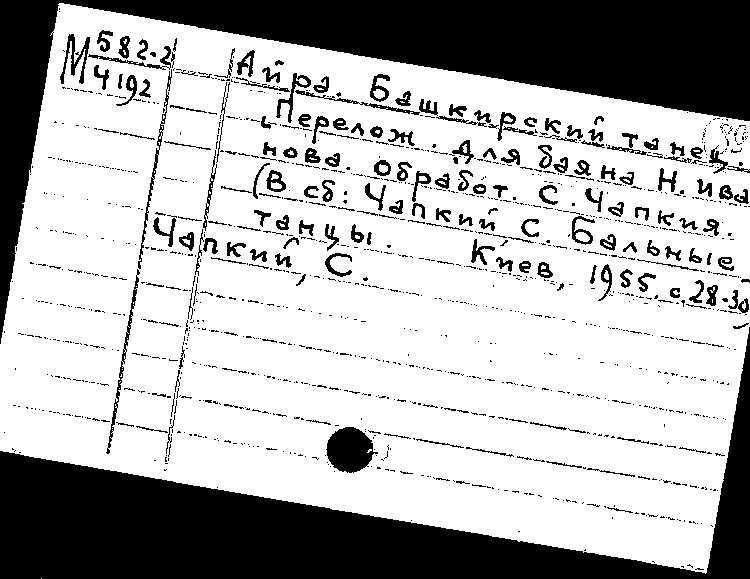 М 582-2
4192
Айра. Башкирский танец.
Перелож. для баяна Н. Ива
нова. Обработ. С. Чапкия.
(В сб: Чапкий, С. Бальные
танцы. Киев, 1955. с. 28-30)
Чапкий, С.